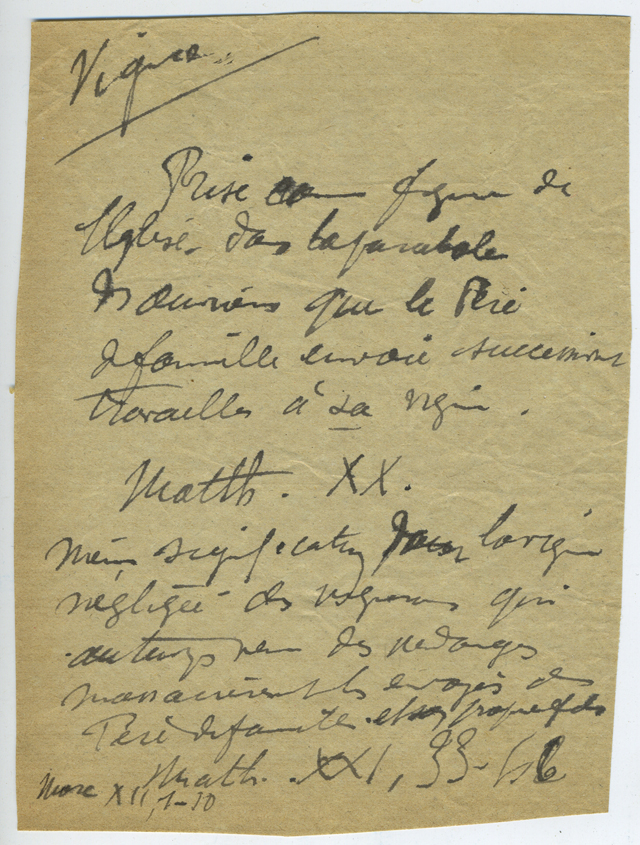 Vigne
Prise comme figure de
l'Eglise dans la parabole
des ouvriers que le Père
de famille envoie successivement
travailler à sa vigne.
Matth. XX.
même signification dans la vigne
négligée des vignerons qui
au temps venu des vendanges
massacrèrent les envoyés du
Père de famille et son propre fils
Math. XXI, 33-46
Marc XII, 1-10